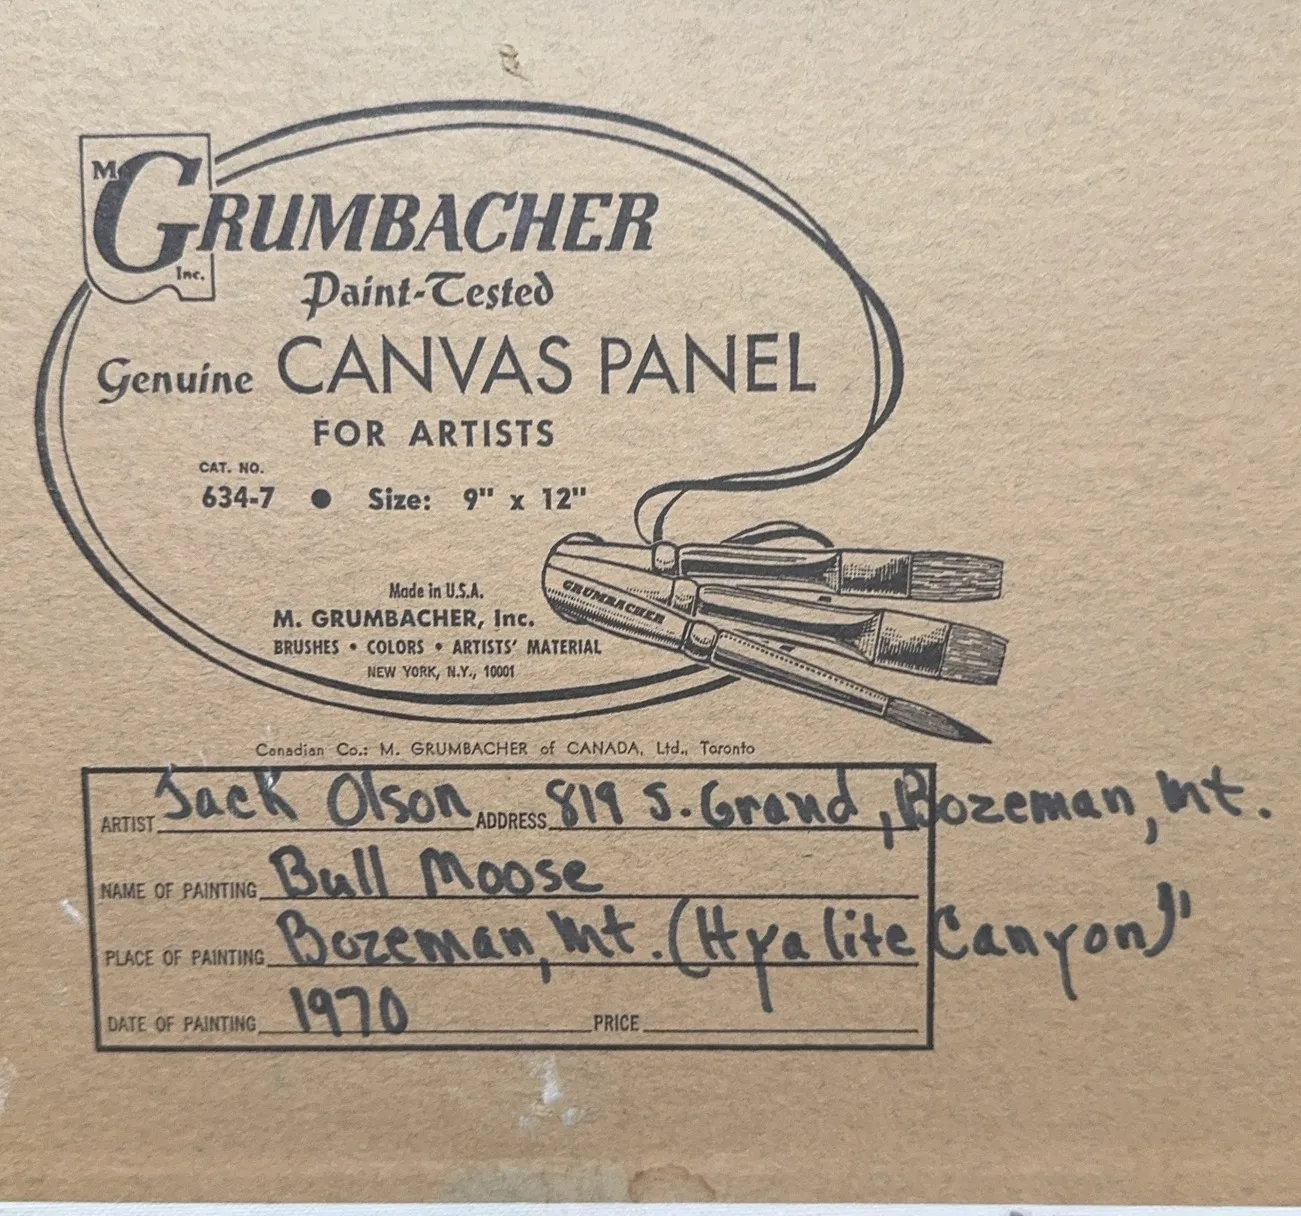 M. GRUMBACHER
Inc.
Paint-Tested
Genuine CANVAS PANEL
FOR ARTISTS
CAT. NO.
634-7 ● Size: 9" x 12"
Made in U.S.A.
M. GRUMBACHER, Inc.
BRUSHES • COLORS • ARTISTS' MATERIAL
NEW YORK, N.Y., 10001
GRUMBACHER
Canadian Co.: M. GRUMBACHER of CANADA, Ltd., Toronto
ARTIST Jack Olson ADDRESS 819 S. Grand, Bozeman, Mt.
NAME OF PAINTING Bull Moose
PLACE OF PAINTING Bozeman, Mt. (Hyalite Canyon)"
DATE OF PAINTING 1970 PRICE